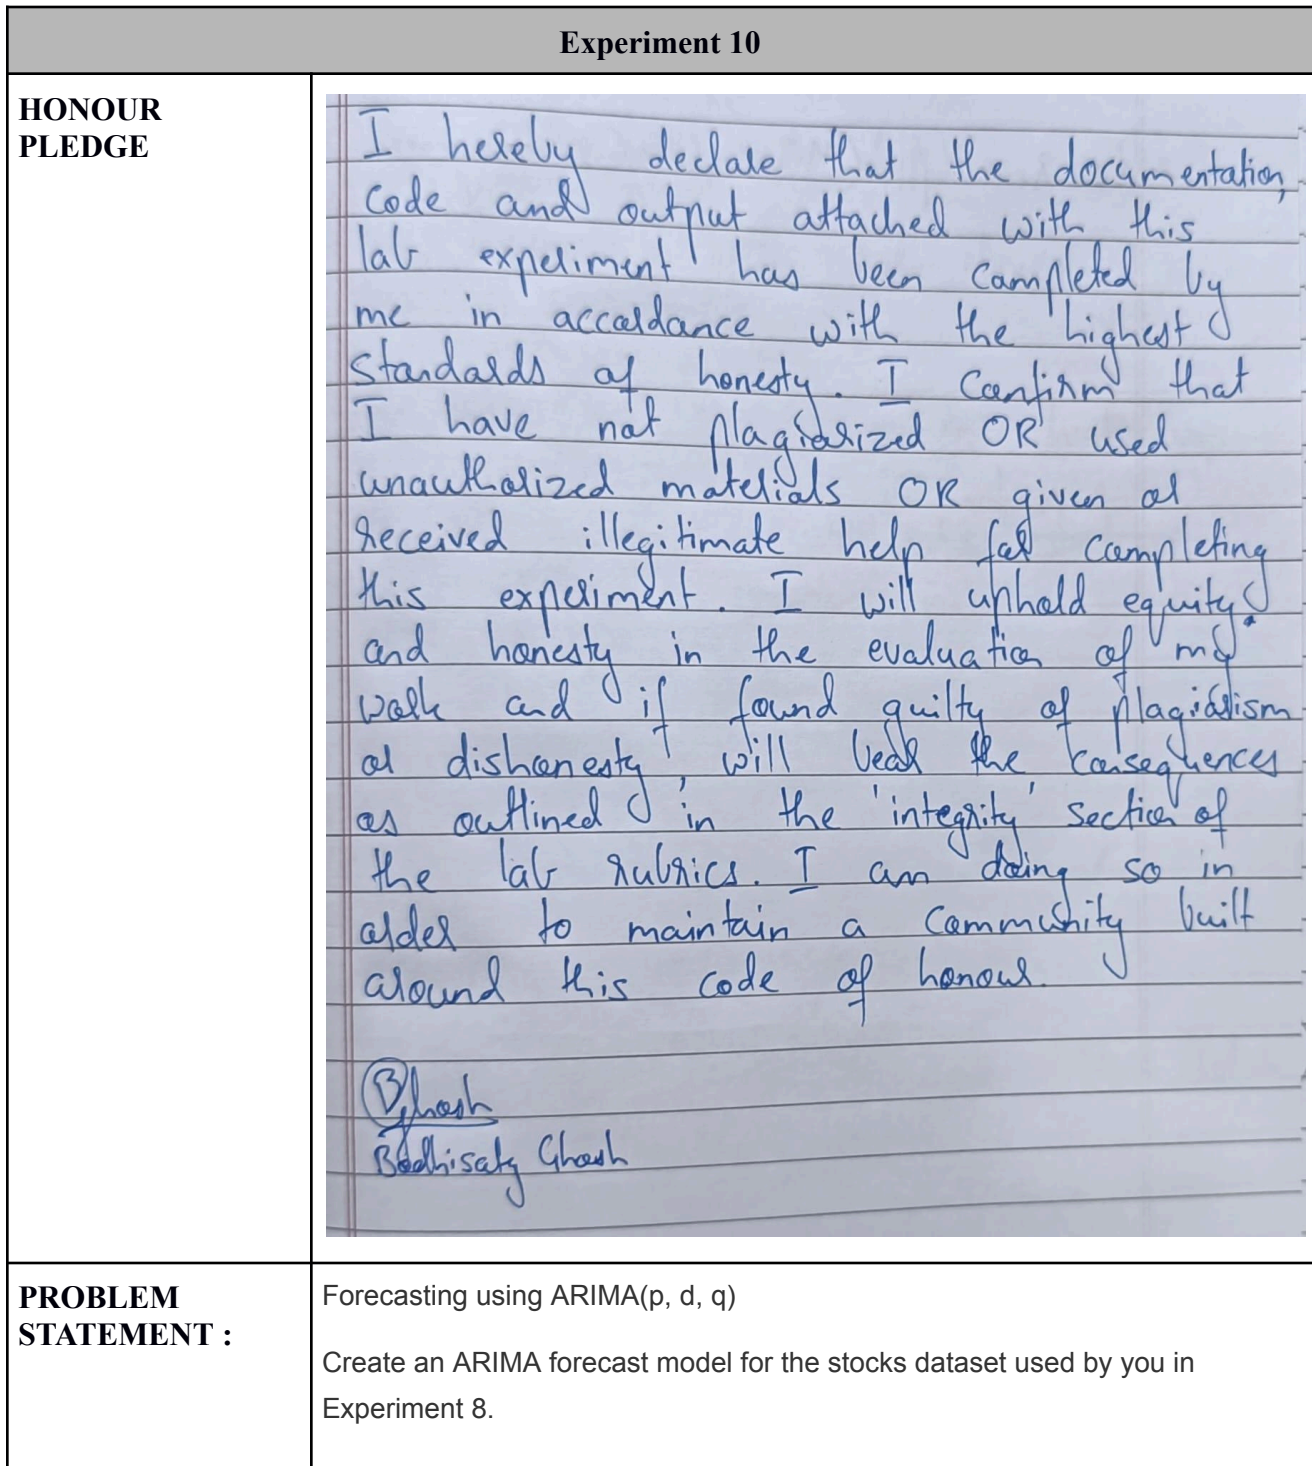 Experiment 10
HONOUR
PLEDGE
I hereby declare that the documentation,
code and output attached with this
lab experiment has been completed by
me in accordance with the highest
standards of honesty. I confirm that
I have not plagiarized OR used
unauthorized materials OR given or
received illegitimate help for completing
this experiment. I will uphold equity
and honesty in the evaluation of my
work and if found guilty of plagiarism
or dishonesty, will bear the consequences
as outlined in the 'integrity' section of
the lab rubrics. I am doing so in
order to maintain a community built
around this code of honour.
BGhosh
Bodhisatya Ghosh
PROBLEM
STATEMENT :
Forecasting using ARIMA(p, d, q)
Create an ARIMA forecast model for the stocks dataset used by you in
Experiment 8.